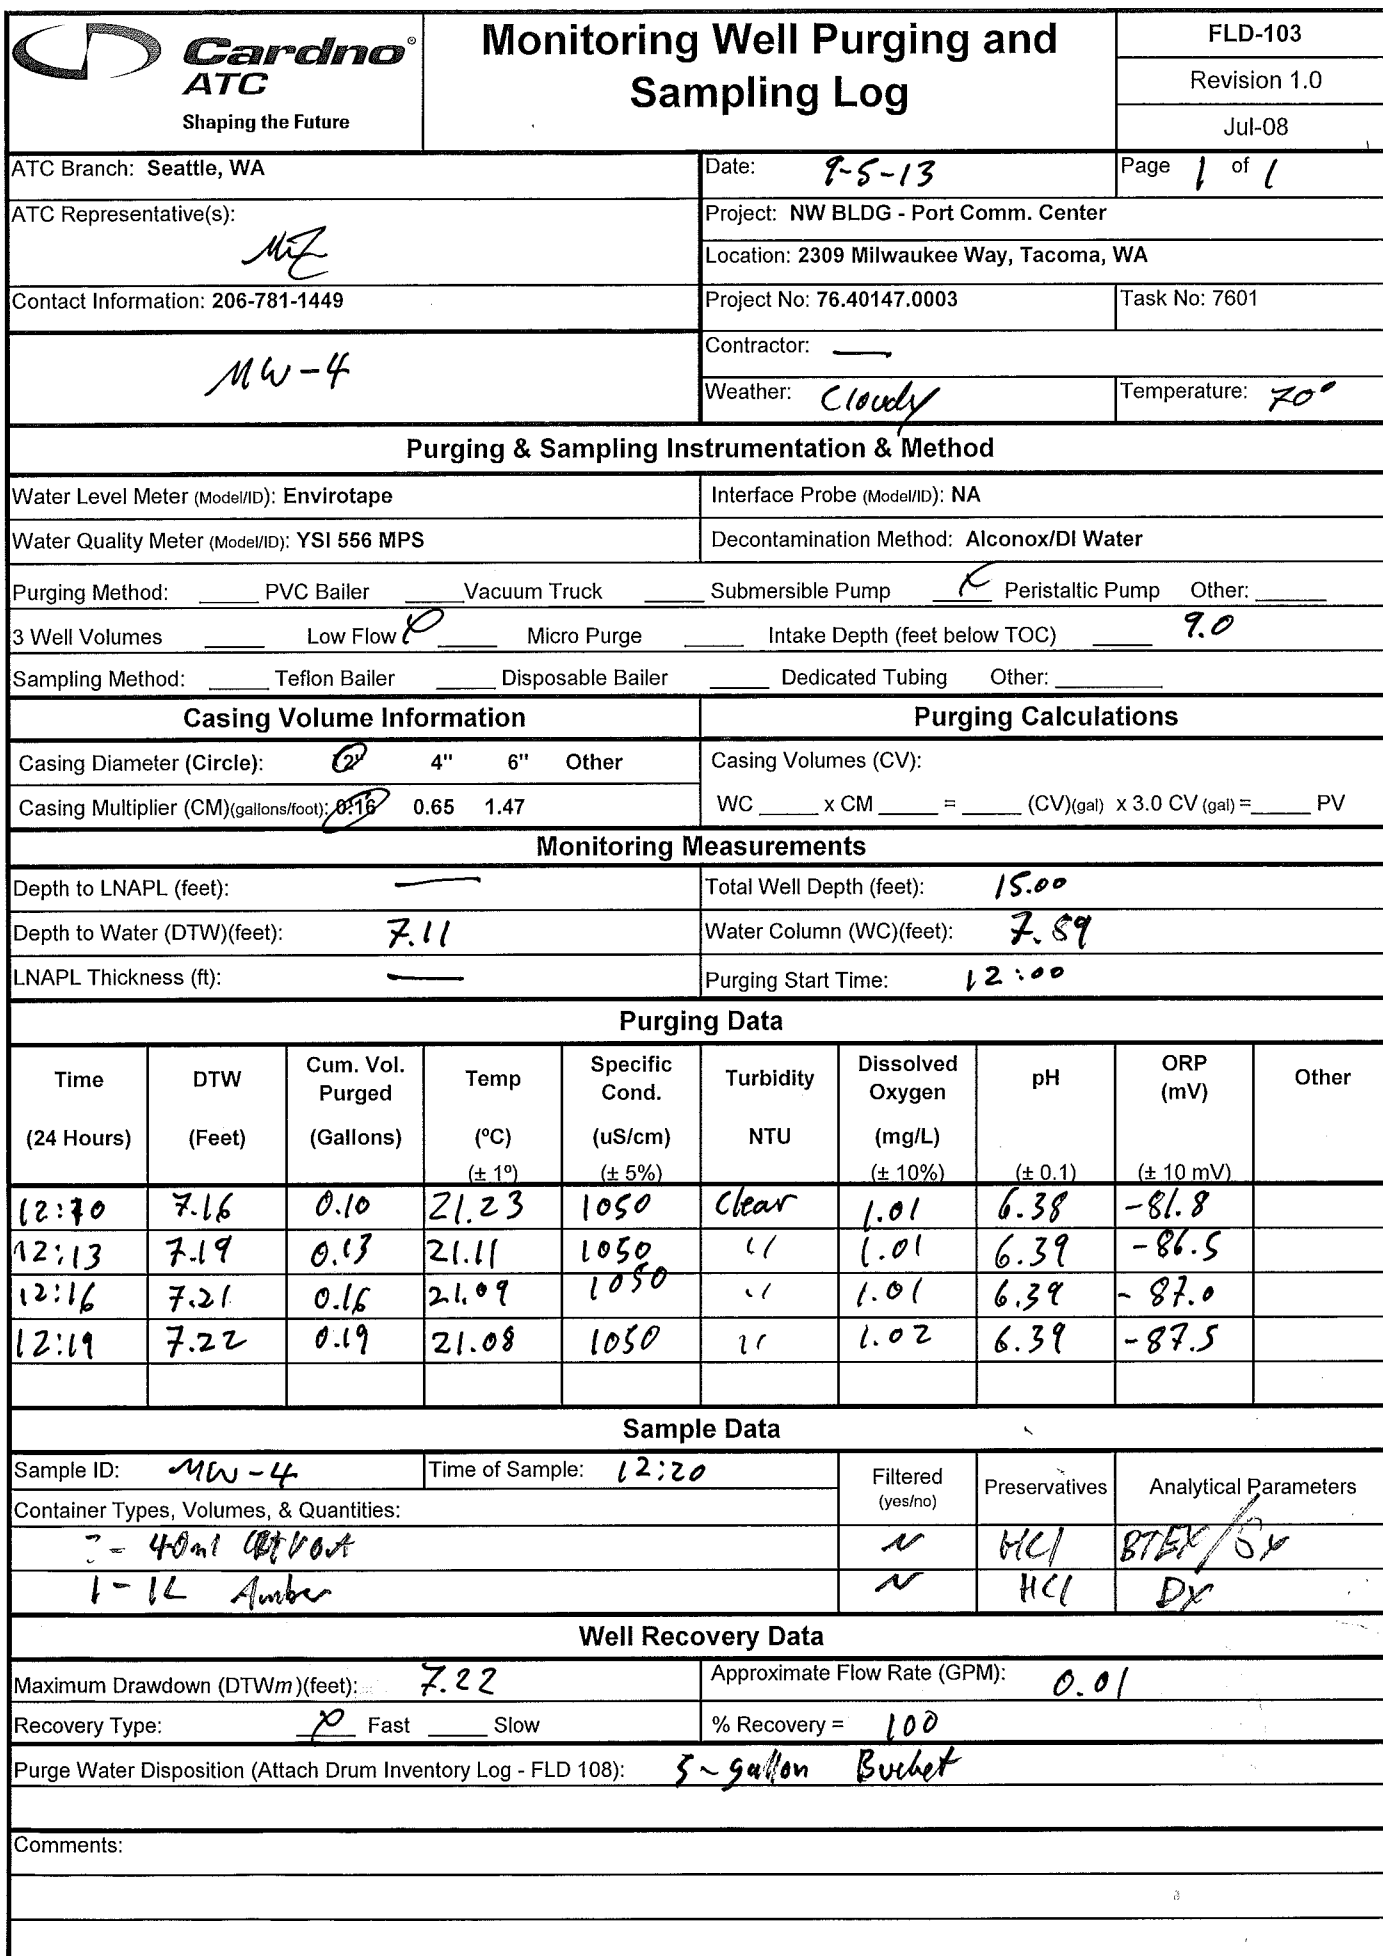 Cardno®
ATC
Shaping the Future
Monitoring Well Purging and
Sampling Log
FLD-103
Revision 1.0
Jul-08
ATC Branch: Seattle, WA
Date: 9-5-13
Page 1 of 1
ATC Representative(s):
Project: NW BLDG - Port Comm. Center
Location: 2309 Milwaukee Way, Tacoma, WA
Contact Information: 206-781-1449
Project No: 76.40147.0003
Task No: 7601
MW-4
Contractor: —
Weather: Cloudy
Temperature: 70°
Purging & Sampling Instrumentation & Method
Water Level Meter (Model/ID): Envirotape
Interface Probe (Model/ID): NA
Water Quality Meter (Model/ID): YSI 556 MPS
Decontamination Method: Alconox/DI Water
Purging Method: _____ PVC Bailer _____ Vacuum Truck _____ Submersible Pump X Peristaltic Pump Other: ______
3 Well Volumes _____ Low Flow X _____ Micro Purge _____ Intake Depth (feet below TOC) _____ 9.0
Sampling Method: _____ Teflon Bailer _____ Disposable Bailer _____ Dedicated Tubing Other: _________
Casing Volume Information
Purging Calculations
Casing Diameter (Circle): 2" 4" 6" Other
Casing Volumes (CV):
Casing Multiplier (CM)(gallons/foot): 0.16 0.65 1.47
WC _____ x CM _____ = _____ (CV)(gal) x 3.0 CV (gal) = _____ PV
Monitoring Measurements
Depth to LNAPL (feet): —
Total Well Depth (feet): 15.00
Depth to Water (DTW)(feet): 7.11
Water Column (WC)(feet): 7.89
LNAPL Thickness (ft): —
Purging Start Time: 12:00
Purging Data
Time (24 Hours) DTW (Feet) Cum. Vol. Purged (Gallons) Temp (ºC) (± 1º) Specific Cond. (uS/cm) (± 5%) Turbidity NTU Dissolved Oxygen (mg/L) (± 10%) pH (± 0.1) ORP (mV) (± 10 mV) Other
12:10 7.16 0.10 21.23 1050 Clear 1.01 6.38 -81.8
12:13 7.19 0.13 21.11 1050 " 1.01 6.39 -86.5
12:16 7.21 0.16 21.09 1050 " 1.01 6.39 -87.0
12:19 7.22 0.19 21.08 1050 " 1.02 6.39 -87.5
Sample Data
Sample ID: MW-4
Time of Sample: 12:20
Filtered (yes/no)
Preservatives
Analytical Parameters
Container Types, Volumes, & Quantities:
- 40ml VOA N HCl BTEX/
1 - 1L Amber N HCl Dx
Well Recovery Data
Maximum Drawdown (DTWm)(feet): 7.22
Approximate Flow Rate (GPM): 0.01
Recovery Type: X Fast _____ Slow
% Recovery = 100
Purge Water Disposition (Attach Drum Inventory Log - FLD 108): 5-gallon Bucket
Comments: